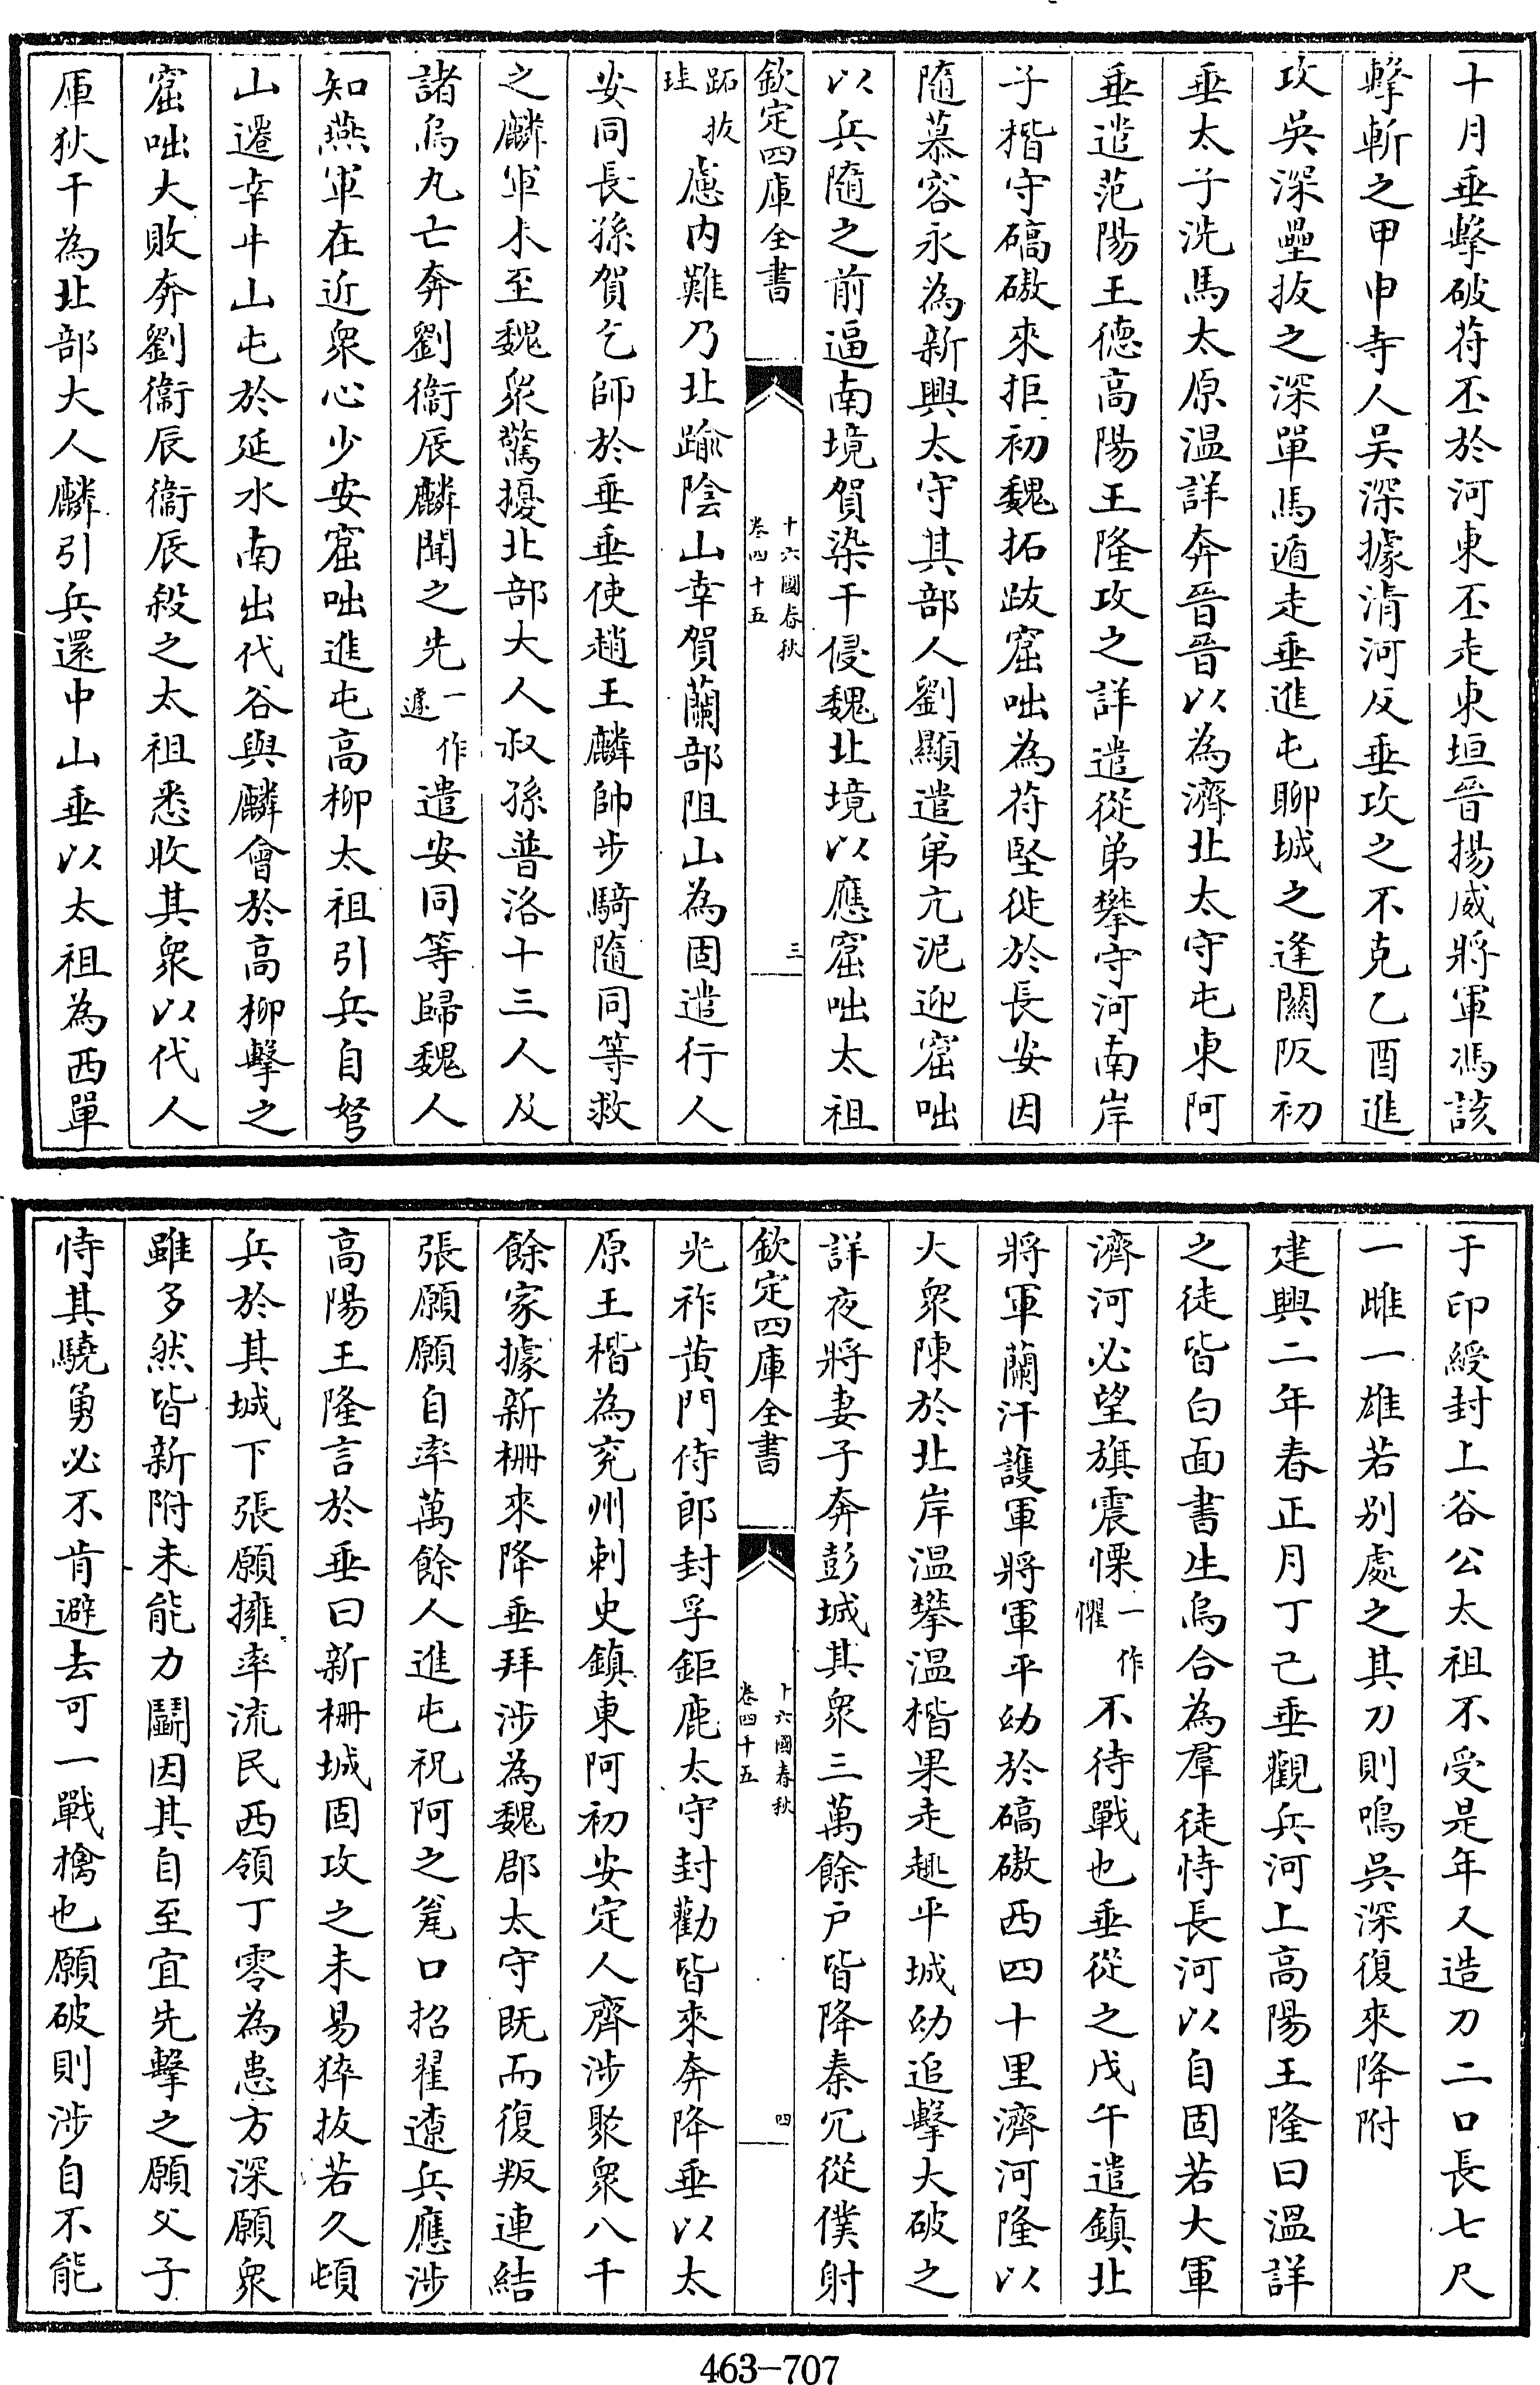 十月垂擊破苻丕於河東丕走東垣晉揚威將軍馮該
擊斬之甲申寺人吳深據清河反垂攻之不克乙酉進
攻吳深壘拔之深單馬遁走垂進屯聊城之逢關陂初
垂太子洗馬太原温詳奔晉晉以為濟北太守屯東阿
垂遣范陽王德高陽王隆攻之詳遣從弟攀守河南岸
子楷守碻磝來拒初魏拓跋窟咄為苻堅徙於長安因
隨慕容永為新興太守其部人劉顯遣弟亢泥迎窟咄
以兵隨之前逼南境賀染干侵魏北境以應窟咄太祖
欽定四庫全書
十六國春秋
卷四十五
三
跖拔珪慮内難乃北踰陰山幸賀蘭部阻山為固遣行人
安同長孫賀乞師於垂垂使趙王麟帥步騎隨同等救
之麟軍未至魏衆驚擾北部大人叔孫普洛十三人及
諸烏九亡奔劉衞辰麟聞之先一作遽遣安同等歸魏人
知燕軍在近衆心少安窟咄進屯高柳太祖引兵自弩
山遷幸牛山屯於延水南出代谷與麟會於高柳擊之
窟咄大敗奔劉衞辰衞辰殺之太祖悉收其衆以代人
庫狄干為北部大人麟引兵還中山垂以太祖為西單
于印綬封上谷公太祖不受是年又造刀二口長七尺
一雌一雄若别處之其刀則鳴吳深復來降附
建興二年春正月丁己垂觀兵河上高陽王隆曰温詳
之徒皆白面書生烏合為羣徒恃長河以自固若大軍
濟河必望旗震慄一作懼不待戰也垂從之戊午遣鎮北
將軍蘭汗護軍將軍平幼於碻磝西四十里濟河隆以
大衆陳於北岸温攀温楷果走趣平城幼追擊大破之
詳夜將妻子奔彭城其衆三萬餘户皆降秦冗從僕射
欽定四庫全書
十六國春秋
卷四十五
四
光祚黄門侍郎封孚鉅鹿太守封勸皆來奔降垂以太
原王楷為兖州刺史鎮東阿初安定人齊涉聚衆八千
餘家據新柵來降垂拜涉為魏郡太守既而復叛連結
張願願自率萬餘人進屯祝阿之甕口招翟遼兵應涉
高陽王隆言於垂曰新柵城固攻之未易猝拔若久頓
兵於其城下張願擁率流民西領丁零為患方深願衆
雖多然皆新附未能力鬬因其自至宜先擊之願父子
恃其驍勇必不肯避去可一戰擒也願破則涉自不能
463-707